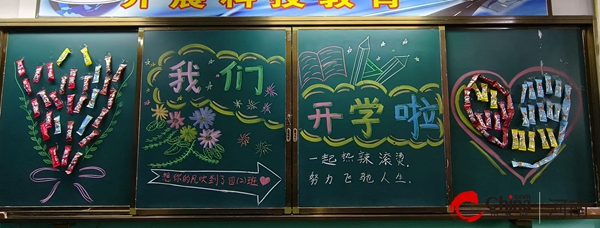 开展科技教育
我们
开学啦
一起热辣滚烫,
努力飞驰人生.
想你的风吹到了四(2)班